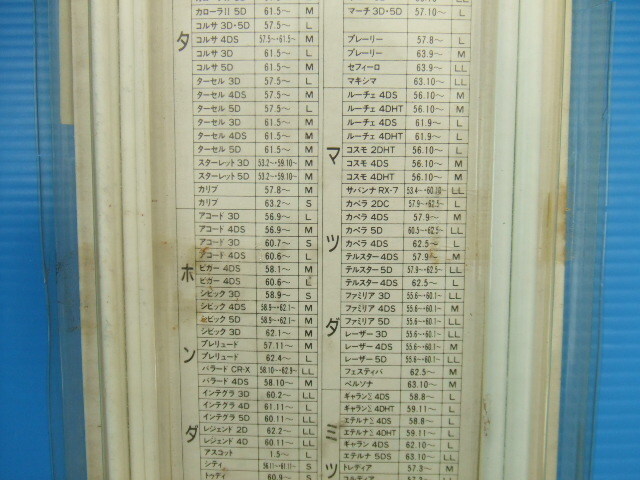 カローラII 5D 61.5〜 M
コルサ 3D・5D 57.5〜 L
コルサ 4DS 57.5〜・61.5〜 M
コルサ 3D 61.5〜 L
コルサ 5D 61.5〜 M
ターセル 3D 57.5〜 L
ターセル 4DS 57.5〜 M
ターセル 5D 57.5〜 L
ターセル 3D 61.5〜 M
ターセル 4DS 61.5〜 M
ターセル 5D 61.5〜 M
スターレット 3D 53.2〜・59.10〜 M
スターレット 5D 53.2〜・59.10〜 M
カリブ 57.8〜 M
カリブ 63.2〜 S
タ
ホンダ
アコード 3D 56.9〜 L
アコード 4DS 56.9〜 M
アコード 3D 60.7〜 S
アコード 4DS 60.6〜 L
ビガー 4DS 58.1〜 M
ビガー 4DS 60.6〜 L
シビック 3D 58.9〜 S
シビック 4DS 58.9〜・62.1〜 M
シビック 5D 58.9〜・62.1〜 M
シビック 3D 62.1〜 M
プレリュード 57.11〜 M
プレリュード 62.4〜 L
バラード CR-X 58.10〜・62.9〜 LL
バラード 4DS 58.10〜 M
インテグラ 3D 60.2〜 LL
インテグラ 4D 61.11〜 L
インテグラ 5D 60.11〜 LL
レジェンド 2D 62.2〜 LL
レジェンド 4D 60.11〜 LL
アスコット 1.5〜 L
シティ 56.11〜・61.11〜 S
トゥディ 60.9〜 S
マーチ 3D・5D 57.10〜 L
プレーリー 57.8〜 L
プレーリー 63.9〜 M
セフィーロ 63.9〜 LL
マキシマ 63.10〜 LL
マツダ
ルーチェ 4DS 56.10〜 M
ルーチェ 4DHT 56.10〜 M
ルーチェ 4DS 61.9〜 L
ルーチェ 4DHT 61.9〜 L
コスモ 2DHT 56.10〜 L
コスモ 4DS 56.10〜 M
コスモ 4DHT 56.10〜 M
サバンナ RX-7 53.4〜・60.10〜 LL
カペラ 2DC 57.9〜・62.5〜 L
カペラ 4DS 57.9〜 M
カペラ 5D 60.5〜・62.5〜 LL
カペラ 4DS 62.5〜 L
テルスター 4DS 57.9〜 M
テルスター 5D 57.9〜・62.5〜 LL
テルスター 4DS 62.5〜 L
ファミリア 3D 55.6〜・60.1〜 LL
ファミリア 4DS 55.6〜・60.1〜 M
ファミリア 5D 55.6〜・60.1〜 LL
レーザー 3D 55.6〜・60.1〜 LL
レーザー 4DS 55.6〜・60.1〜 M
レーザー 5D 55.6〜・60.1〜 LL
フェスティバ 62.5〜 M
ペルソナ 63.10〜 M
ミツ
ギャランΣ 4DS 58.8〜 L
ギャランΣ 4DHT 59.11〜 L
エテルナΣ 4DS 58.8〜 L
エテルナΣ 4DHT 59.11〜 L
ギャラン 4DS 62.10〜 L
エテルナ 5DS 63.10〜 LL
トレディア 57.3〜 M